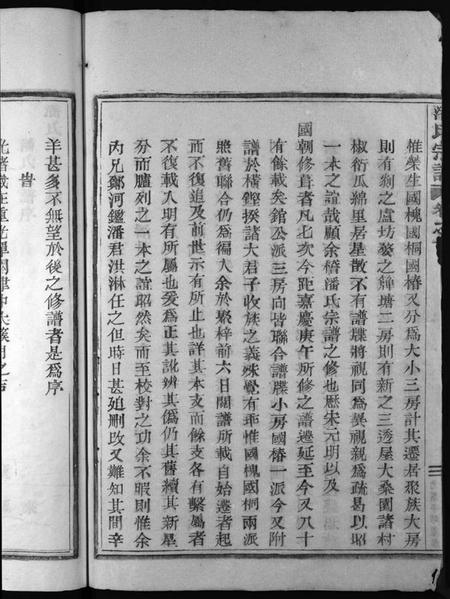 潘氏宗譜
惟樂生國槐國桐國椿又分為大小三房計其遷居聚族大房
則有剡之盧坊婺之 塘二房則有新之三透屋大桑園諸村
椒衍瓜綿里居星散不有譜牒將視同為異視親為疏曷以昭
一本之誼哉顧余稽潘氏宗譜之修也歷宋元明以及
國朝修葺者凡七次今距嘉慶庚午所修之譜遷延至今又八十
有餘載矣錧公派三房向皆聯合譜牒小房國椿一派今又附
譜於橫鏗揆諸大君子收族之義殊覺有乖惟國槐國桐兩派
照舊聯合仍為徧人余於聚梓前六日閱譜所載自始遷者起
而不復追及前世示有所止也詳其本支而餘支各有繫屬者
不復載入明有所屬也爰為正其訛辨其偽仍其舊續其新羣
分而臚列之一本之誼昭然矣而至校對之功余不暇則惟余
內兄鄭河鑑潘君洪淋任之但時日甚廹刪改又難知其間辛
羊甚多不無望於後之修譜者是為序
旹